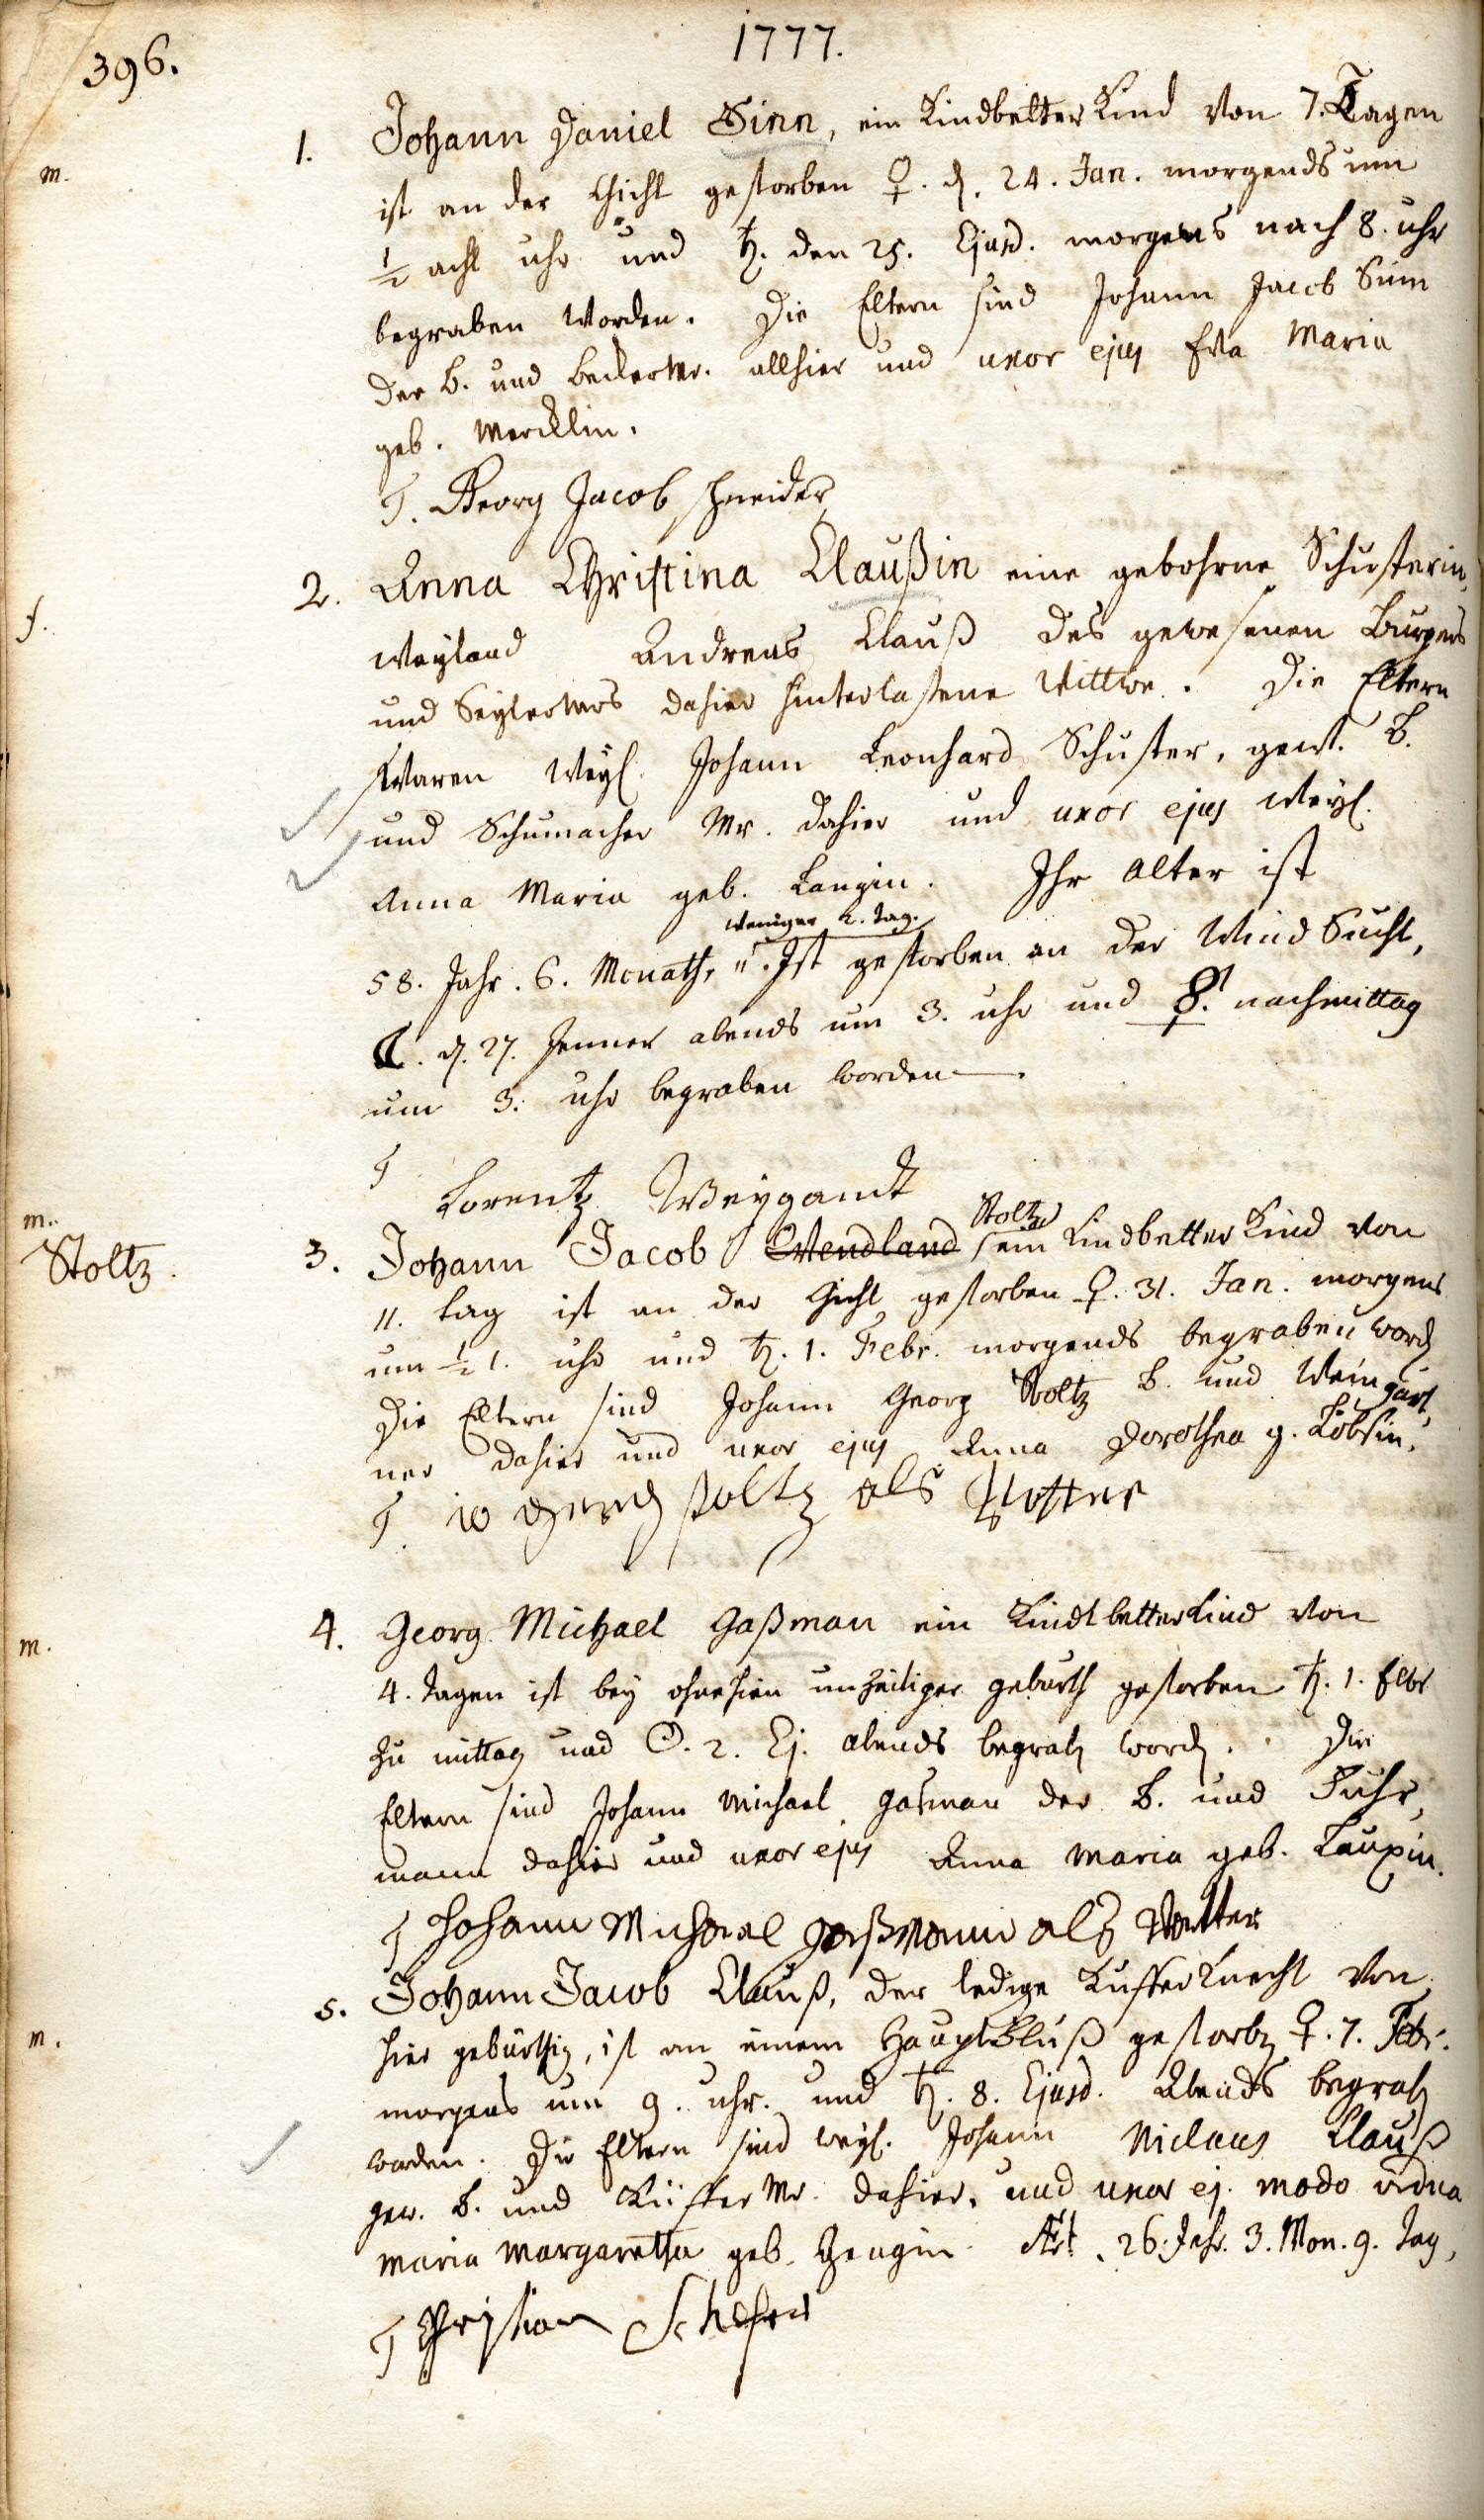 396.
1777.
1. Johann Daniel Sinn, ein Kindbetter Kind von 7. Tagen
m.
ist an der Gicht gestorben ♀. d. 24. Jan. morgends um
½ acht uhr und ♄. den 25. Ejusd. morgens nach 8. uhr
begraben worden. Die Eltern sind Johann Jacob Sinn
der B. und beckermr. allhier und uxor ejus Eva Maria
geb. Mercklin.
T. Georg Jacob schneider
2. Anna Christina Claußin eine gebohrne Schusterin,
f.
weyland Andreas Clauß des gewesenen Burgers
und Seylermrs dahier hinterlaßene Wittwe. Die Eltern
waren weyl. Johann Leonhard Schuster, gew. B.
und Schumacher Mr. dahier und uxor ejus weyl.
Anna Maria geb. Langin. Ihr alter ist
weniger 2. tag.
58. Jahr. 6. Monath, Ist gestorben an der Wind Sucht,
☾. d. 27. Jenner abends um 3. uhr und nachmittag
um 3. uhr begraben worden.
T Lorentz Weygandt
m.
Stoltz.
Stoltz
3. Johann Jacob Wendland ein Kindbetter Kind von
11. tag ist an der Gicht gestorben ♀. 31. Jan. morgens
um ½ 1. uhr und ♄. 1. Febr. morgends begraben word
Die Eltern sind Johann Georg Stoltz B. und Weingart
ner dahier und uxor ejus Anna Dorothea g. Löbsin.
T. Jo georg stoltz als Vatter
4. Georg Michael Gaßman ein Kindtbetter Kind von
m.
4. Tagen ist bey ohnehin unzeitiger geburth gestorben ♄. 1. febr
zu mittag und ☉. 2. Ej. abends begrab word. Die
Eltern sind Johann Michael Gaßman der B. und Fuhr
mann dahier und uxor ejus Anna Maria geb. Lauxin.
T Johann Michael gaßmann als Vatter
5. Johann Jacob Clauß, der ledige Kuffer Knecht von
m.
hier gebürthig, ist an einem Haupt Fluß gestorb ♀. 7. Febr.
morgens um 9. uhr. und ♄. 8. Ejusd. Abends begrab
worden. Die Eltern sind weyl. Johann Niclaus Clauß
gew. B. und Küffer Mr. dahier, und uxor ej. modo vidua
Maria Margaretha geb. Zengin Æt. 26. Jahr. 3. Mon. 9. Tag,
T Christian Schefer